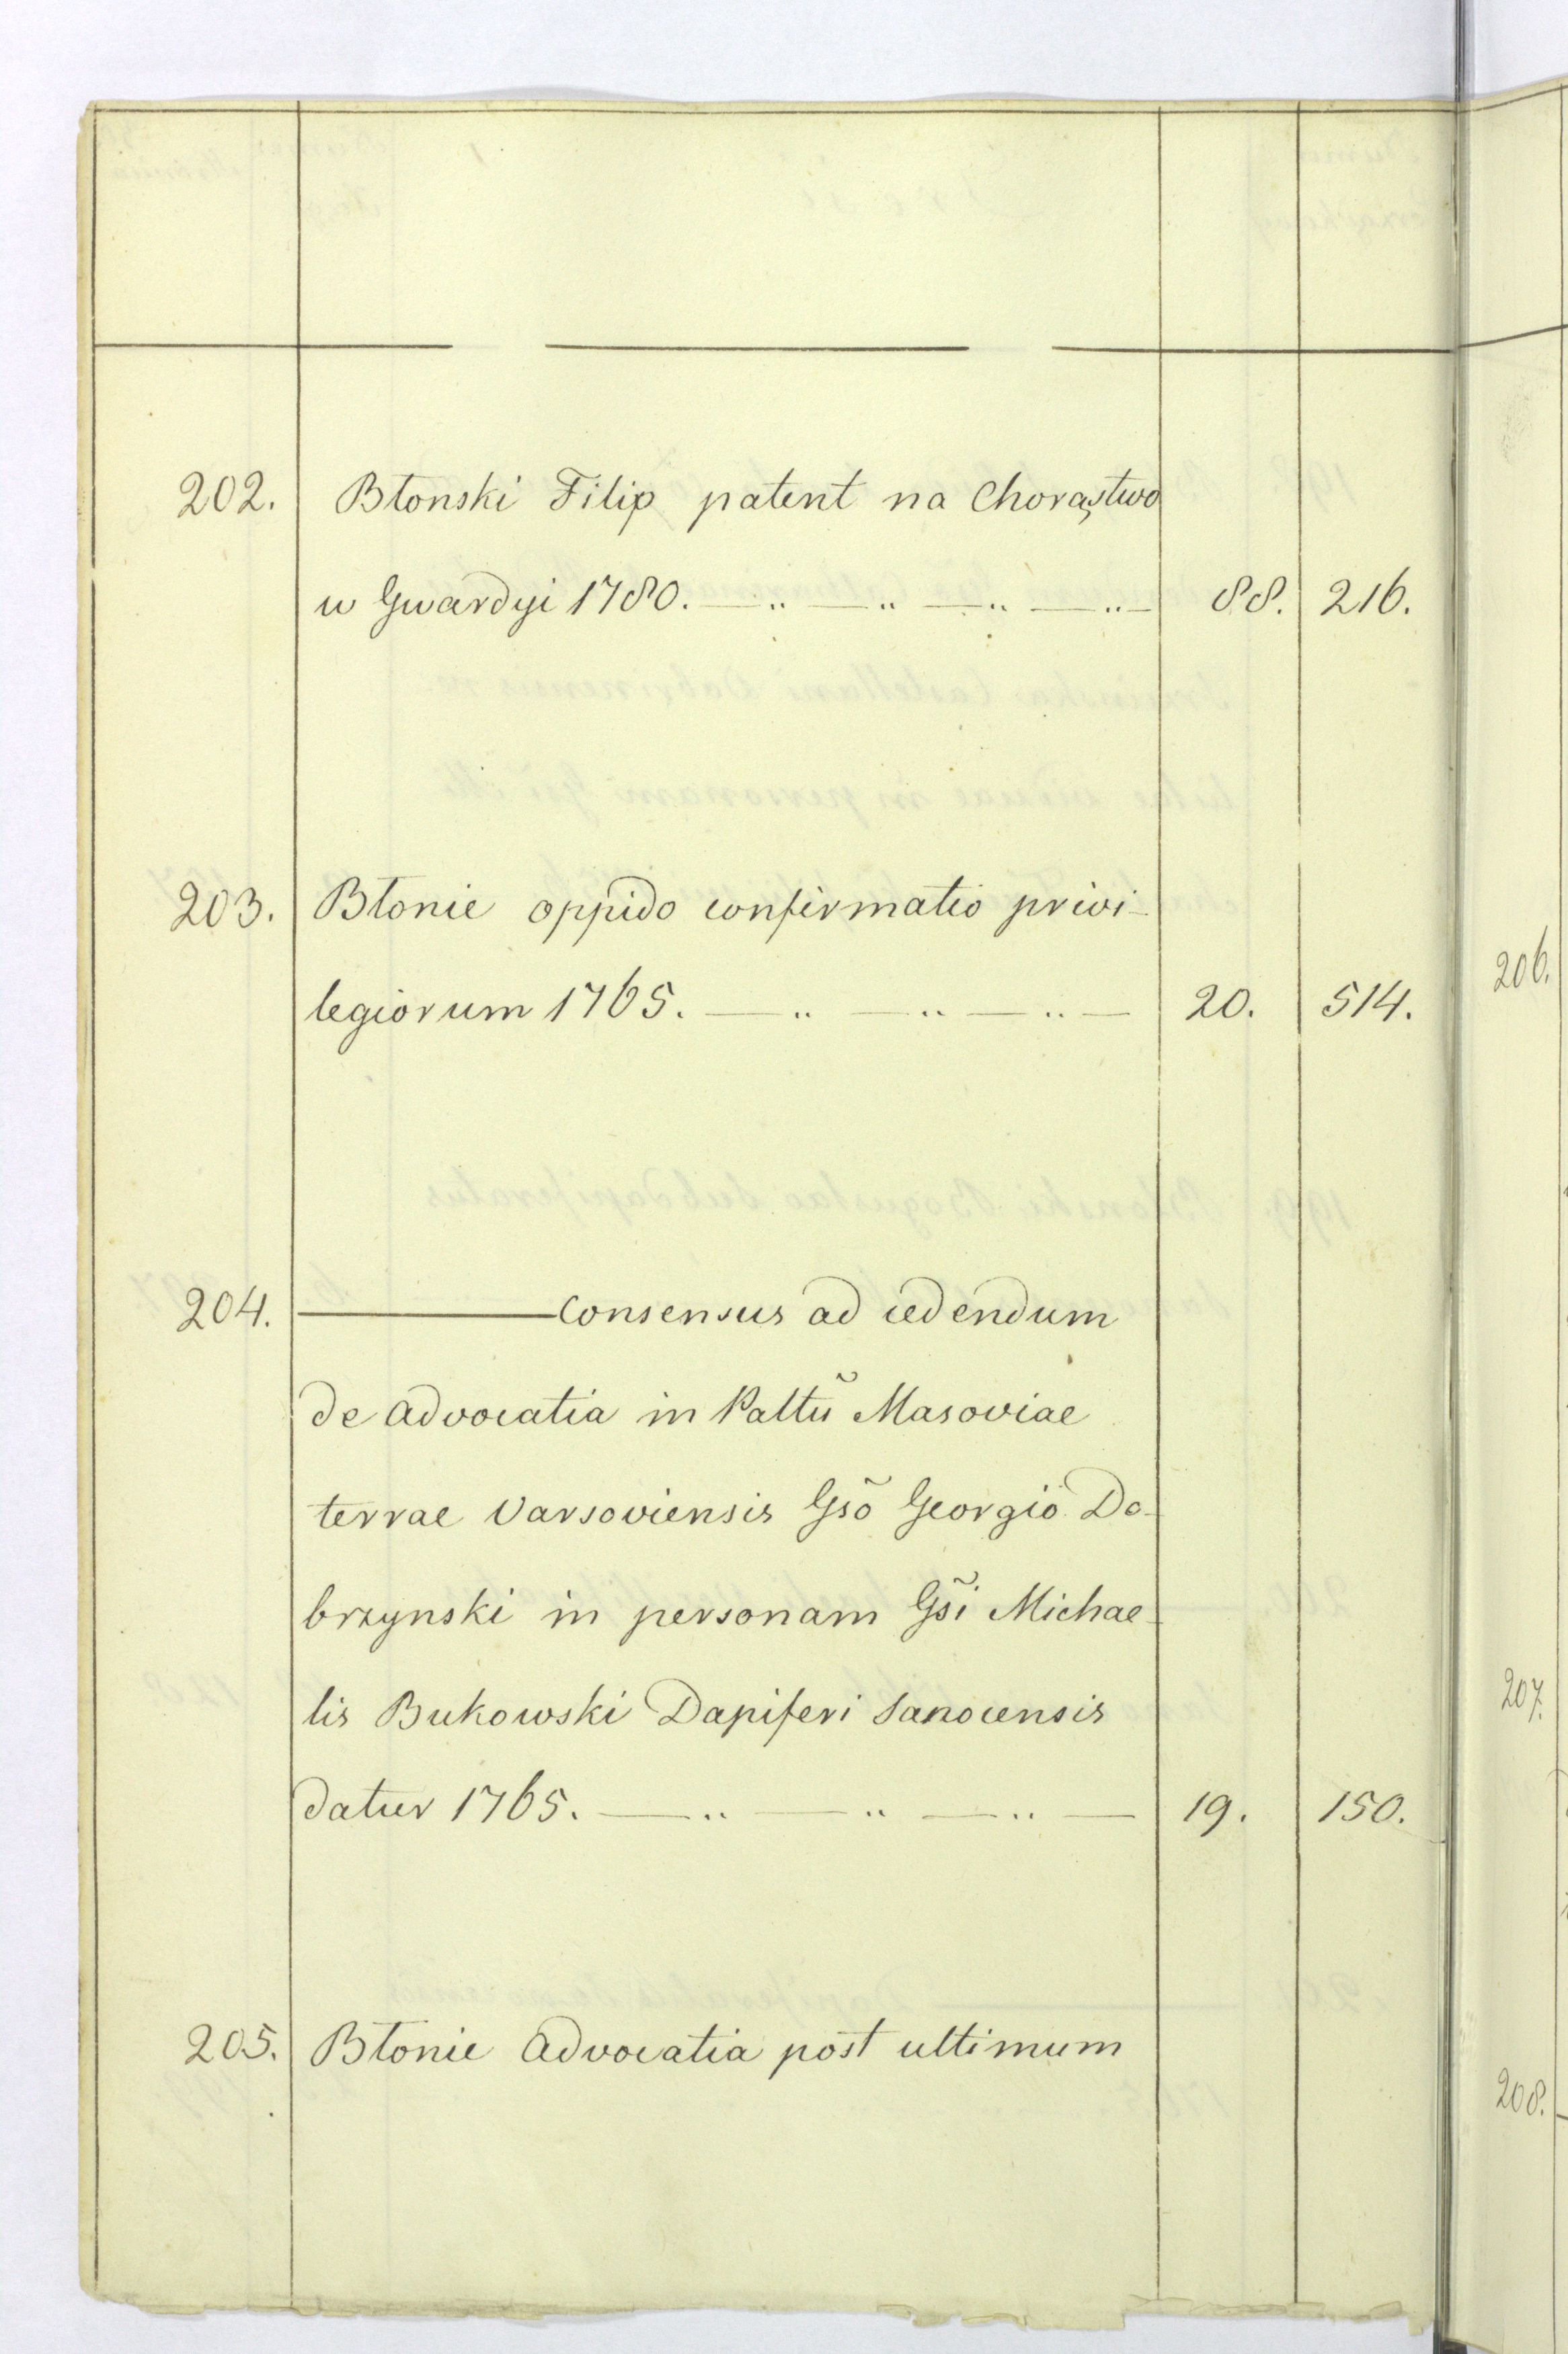 202. Błonski Filip patent na Chorąstwo
w Gwardyi 1780. — " — " — " — " — 88. 216.
203. Błonie oppido confirmatio privi-
legiorum 1765. — " — " — " — 20. 514.
204. ——— Consensus ad cedendum
de Advocatia in Paltũ Masoviae
terrae Varsoviensis Gsõ Georgio Do-
brzynski in personam Gs̃i Michae-
lis Bukowski Dapiferi Sanocensis
datur 1765. — " — " — " — 19. 150.
205. Błonie Advocatia post ultimum
206.
207.
208.